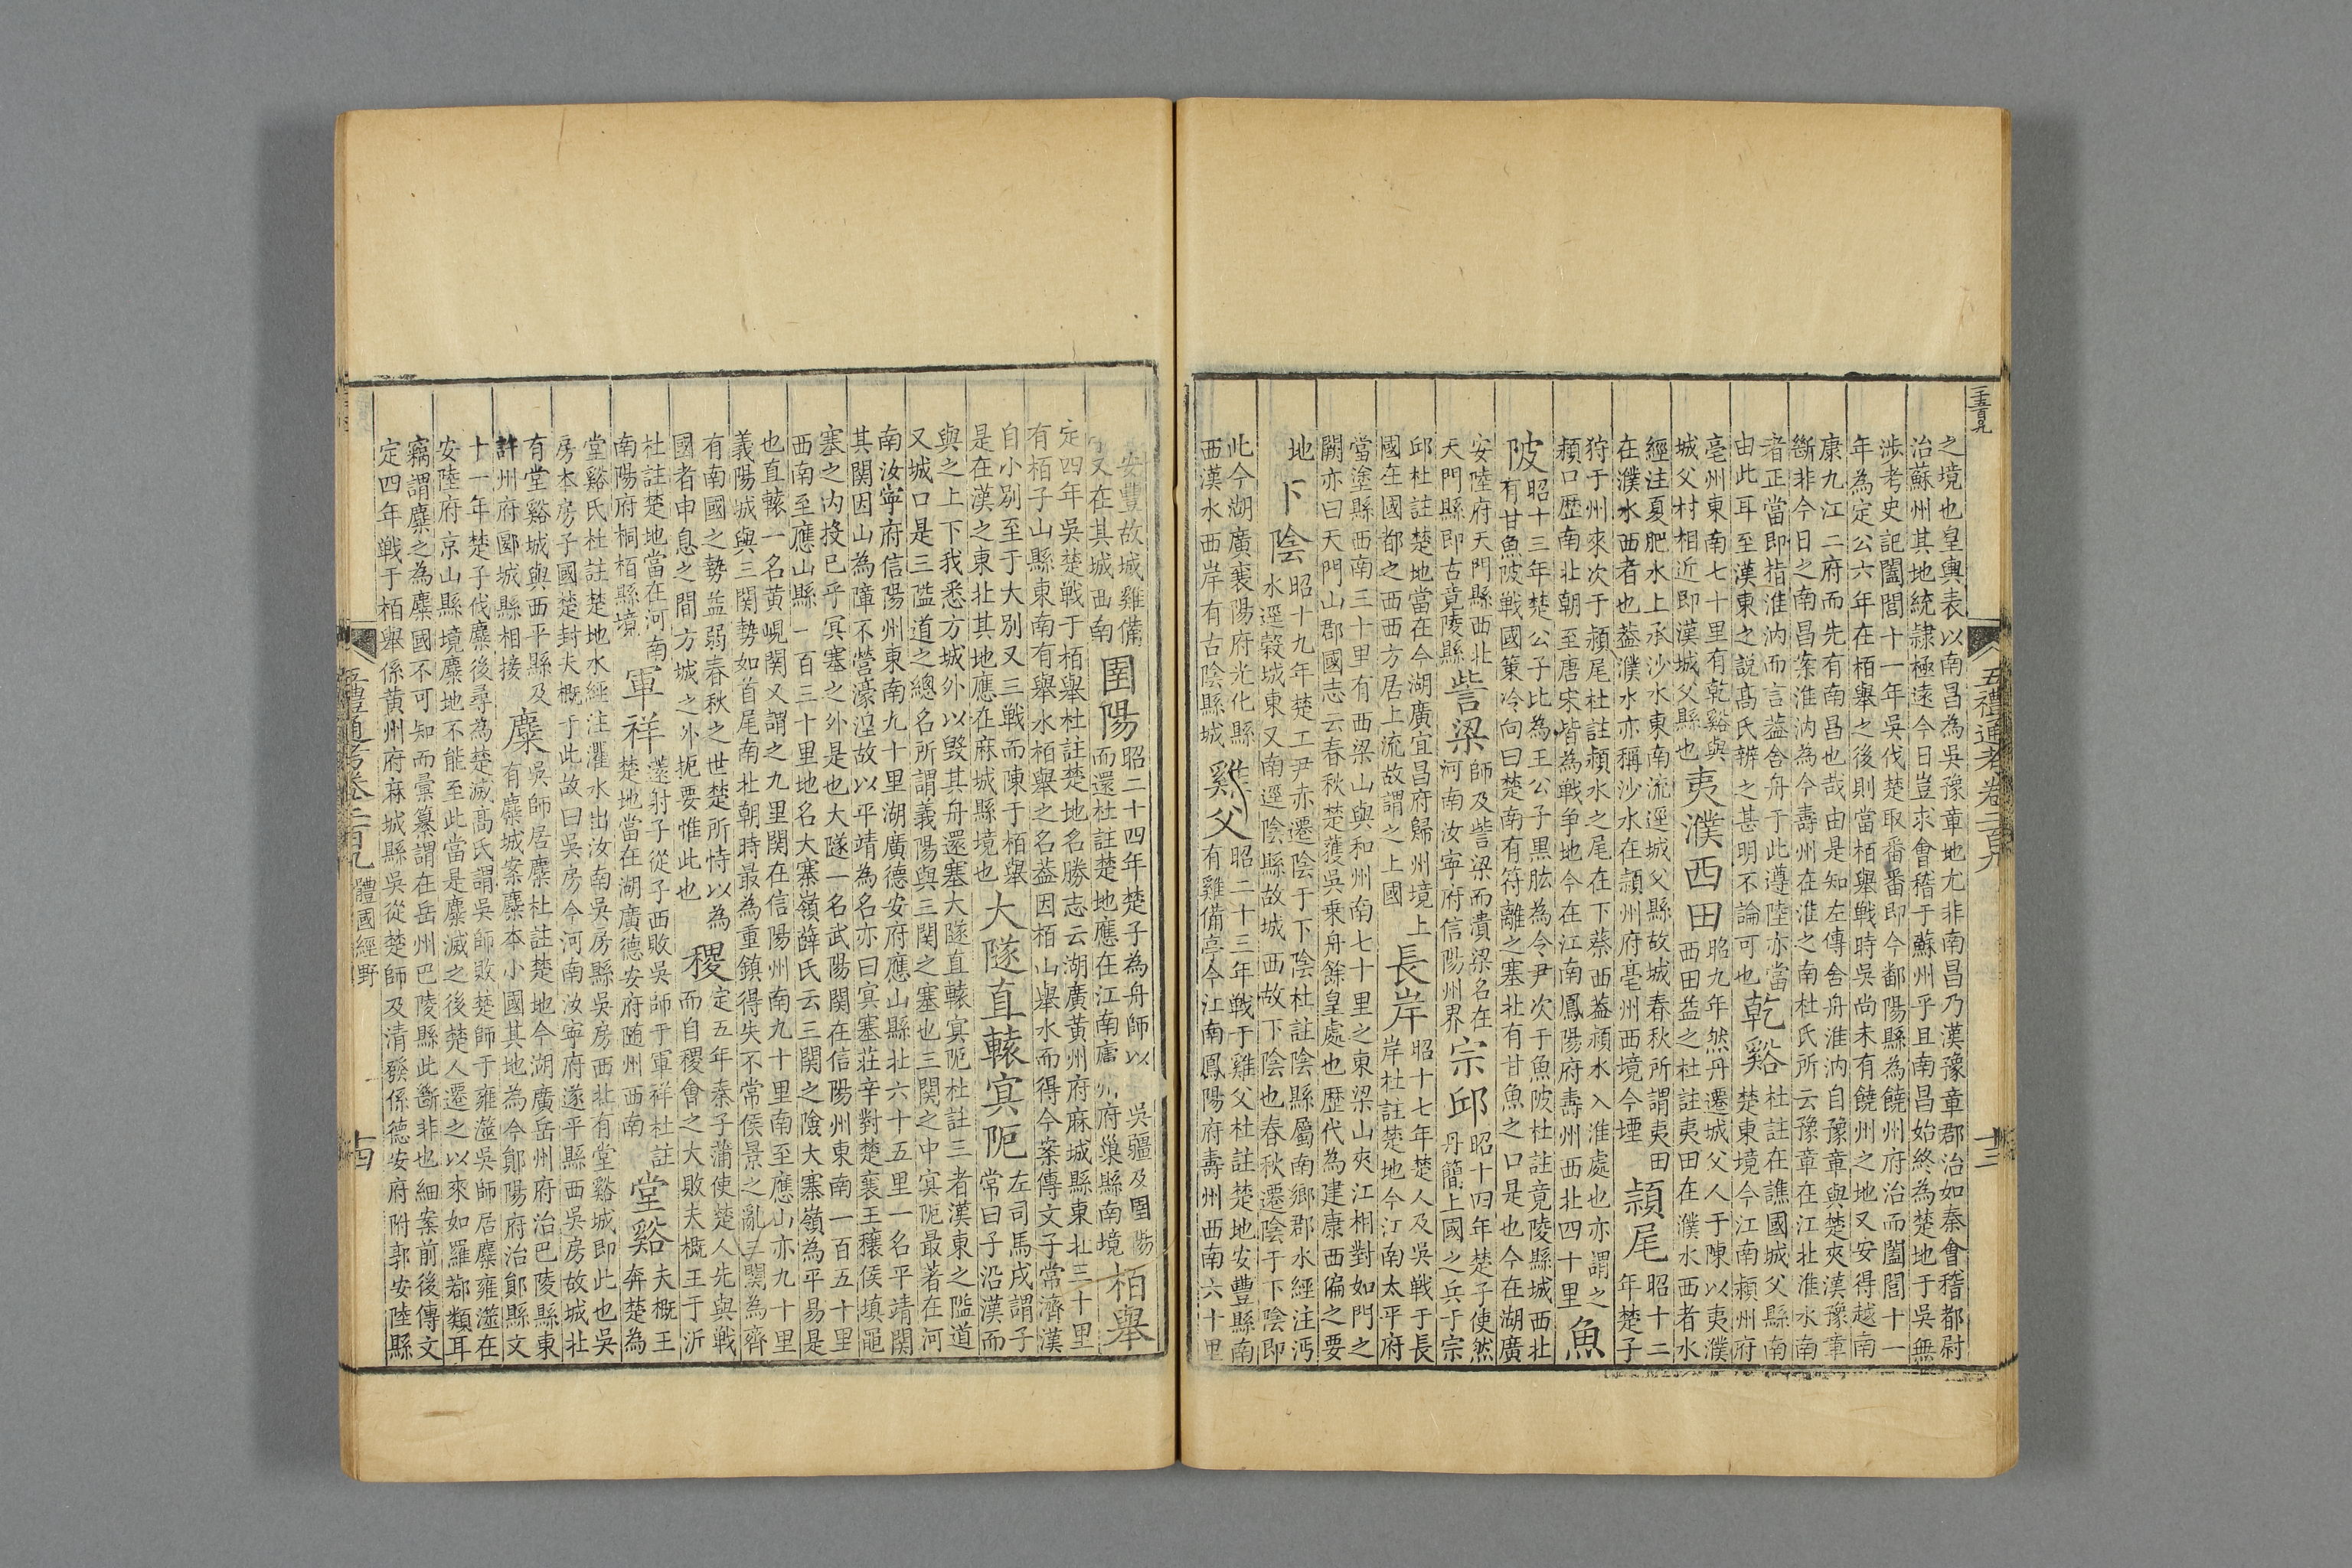 五禮通考卷二百九
十三
之境也皇輿表以南昌為吳豫章地尤非南昌乃漢豫章郡治如秦會稽都尉
治蘇州其地統隷極遠今日豈求會稽于蘇州乎且南昌始終為楚地于吳無
涉考史記闔閭十一年吳伐楚取番番即今鄱陽縣為饒州府治而闔閭十一
年為定公六年在栢舉之後則當栢舉戰時吳尚未有饒州之地又安得越南
康九江二府而先有南昌也哉由是知左傳舍舟淮汭自豫章與楚夾漢豫章
斷非今日之南昌案淮汭為今壽州在淮之南杜氏所云豫章在江北淮水南
者正當即指淮汭而言葢舍舟于此遵陸亦當
由此耳至漢東之說髙氏辨之甚明不論可也
乾谿
杜註在譙國城父縣南
楚東境今江南潁州府
亳州東南七十里有乾谿與
城父村相近即漢城父縣也
夷濮西田
昭九年然丹遷城父人于陳以夷濮
西田益之杜註夷田在濮水西者水
經注夏肥水上承沙水東南流逕城父縣故城春秋所謂夷田
在濮水西者也葢濮水亦稱沙水在潁州府亳州西境今堙
頴尾
昭十二
年楚子
狩于州來次于潁尾杜註潁水之尾在下蔡西葢潁水入淮處也亦謂之
潁口歷南北朝至唐宋皆為戰争地今在江南鳳陽府壽州西北四十里
魚
陂
昭十三年楚公子比為王公子黒肱為令尹次于魚陂杜註竟陵縣城西北
有甘魚陂戰國策冷向曰楚南有符離之塞北有甘魚之口是也今在湖廣
安陸府天門縣西北
天門縣即古竟陵縣
訾梁
師及訾梁而潰梁名在
河南汝寧府信陽州界
宗邱
昭十四年楚子使然
丹簡上國之兵于宗
邱杜註楚地當在今湖廣宜昌府歸州境上
國在國都之西西方居上流故謂之上國
長岸
昭十七年楚人及吳戰于長
岸杜註楚地今江南太平府
當塗縣西南三十里有西梁山與和州南七十里之東梁山夾江相對如門之
闕亦曰天門山郡國志云春秋楚獲吳乗舟餘皇處也歷代為建康西偏之要
地
下陰
昭十九年楚工尹赤遷陰于下陰杜註陰縣屬南鄉郡水經注沔
水逕穀城東又南逕陰縣故城西故下陰也春秋遷陰于下陰即
此今湖廣襄陽府光化縣
西漢水西岸有古陰縣城
雞父
昭二十三年戰于雞父杜註楚地安豐縣南
有雞備亭今江南鳳陽府壽州西南六十里
安豐故城雞備
又在其城西南
圉陽
昭二十四年楚子為舟師以
吳疆及圉陽
而還杜註楚地應在江南廬州府巢縣南境
栢舉
定四年吳楚戰于栢舉杜註楚地名勝志云湖廣黃州府麻城縣東北三十里
有栢子山縣東南有舉水栢舉之名葢因栢山舉水而得今案傳文子常濟漢
自小別至于大別又三戰而陳于栢舉
是在漢之東北其地應在麻城縣境也
大隧直轅㝠阨
左司馬戌謂子
常曰子沿漢而
與之上下我悉方城外以毀其舟還塞大隧直轅㝠阨杜註三者漢東之隘道
又城口是三隘道之總名所謂義陽與三関之塞也三関之中㝠阨最著在河
南汝寧府信陽州東南九十里湖廣德安府應山縣北六十五里一名平靖関
其関因山為障不營濠湟故以平靖為名亦曰㝠塞莊辛對楚襄王穰侯填黽
塞之内投已乎㝠塞之外是也大隧一名武陽関在信陽州東南一百五十里
西南至應山縣一百三十里地名大寨嶺薛氏云三関之險大寨嶺為平易是
也直轅一名黄峴関又謂之九里関在信陽州南九十里南至應山亦九十里
義陽城與三関勢如首尾南北朝時最為重鎮得失不常侯景之亂三関為齊
有南國之勢益弱春秋之世楚所恃以為
國者申息之間方城之外扼要惟此也
稷
定五年秦子蒲使楚人先與戰
而自稷會之大敗夫概王于沂
杜註楚地當在河南
南陽府桐柏縣境
軍祥
薳射子從子西敗吳師于軍祥杜註
楚地當在湖廣德安府随州西南
堂谿
夫概王
奔楚為
堂谿氏杜註楚地水經注灈水出汝南吳房縣吳房西北有堂谿城即此也吳
房本房子國楚封夫概于此故曰吳房今河南汝寧府遂平縣西吳房故城北
有堂谿城與西平縣及
許州府郾城縣相接
麋
吳師居麋杜註楚地今湖廣岳州府治巴陵縣東
有麋城案麋本小國其地為今鄖陽府治鄖縣文
十一年楚子伐麋後尋為楚滅髙氏謂吳師敗楚師于雍澨吳師居麋雍澨在
安陸府京山縣境麋地不能至此當是麋滅之後楚人遷之以來如羅鄀類耳
竊謂麋之為麋國不可知而彚纂謂在岳州巴陵縣此斷非也細案前後傳文
定四年戰于栢舉係黄州府麻城縣吳從楚師及清發係德安府附郭安陸縣
五禮通考卷二百九
體國經野
十四